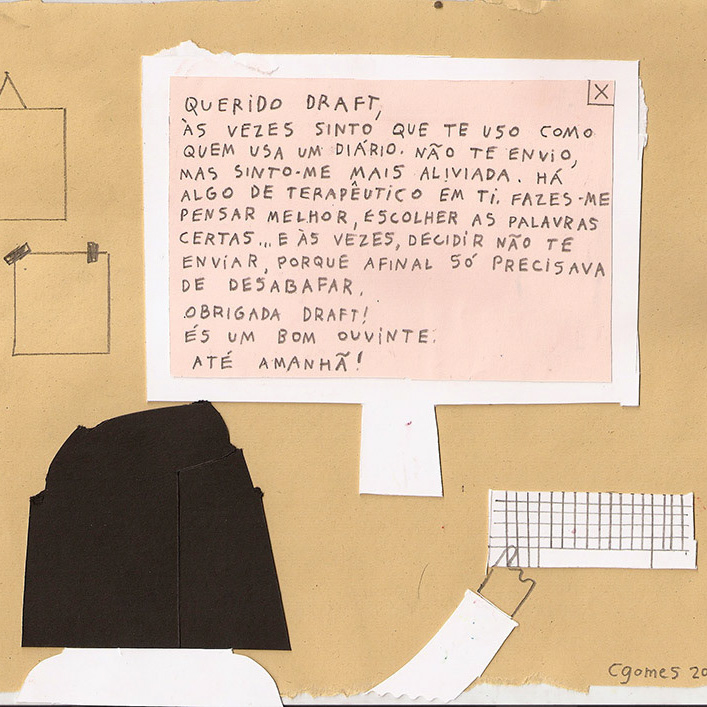 X
QUERIDO DRAFT,
ÀS VEZES SINTO QUE TE USO COMO
QUEM USA UM DIÁRIO. NÃO TE ENVIO,
MAS SINTO-ME MAIS ALIVIADA. HÁ
ALGO DE TERAPÊUTICO EM TI. FAZES-ME
PENSAR MELHOR, ESCOLHER AS PALAVRAS
CERTAS... E ÀS VEZES, DECIDIR NÃO TE
ENVIAR, PORQUE AFINAL SÓ PRECISAVA
DE DESABAFAR.
OBRIGADA DRAFT!
ÉS UM BOM OUVINTE.
ATÉ AMANHÃ!
Cgomes 20